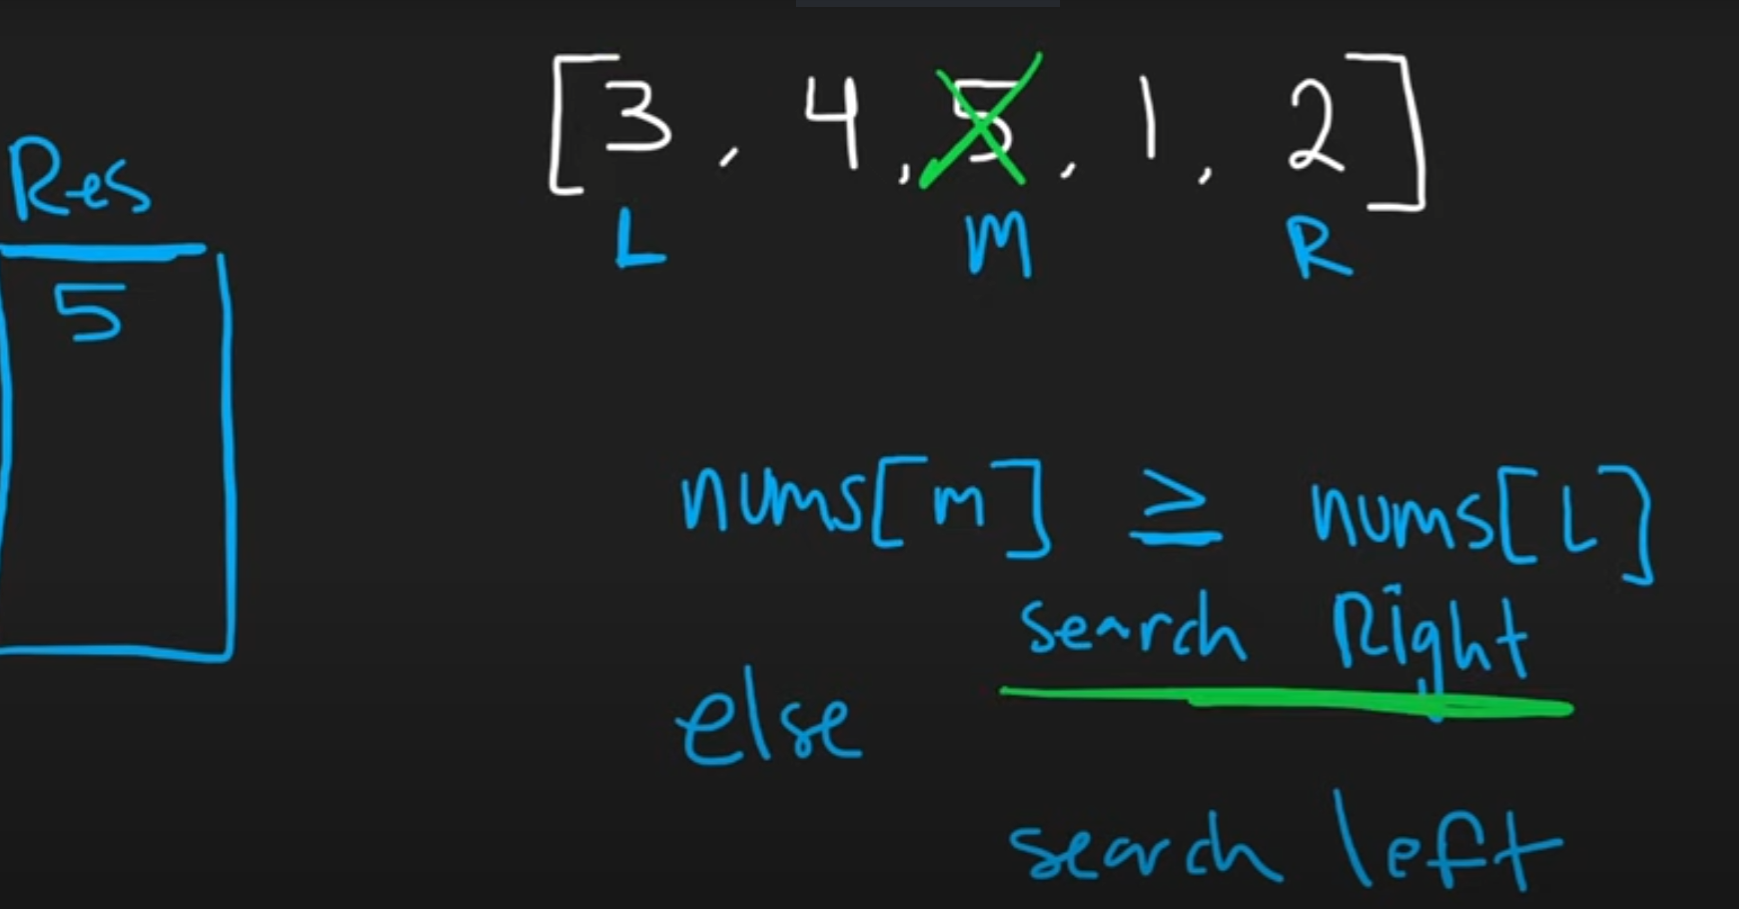 [3, 4, 5, 1, 2]
L M R
Res
5
nums[m] ≥ nums[L]
search Right
else
search left